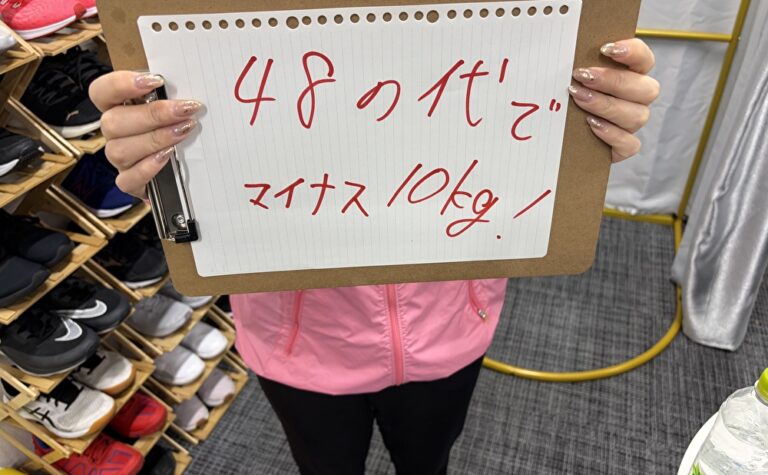 48の代で
マイナス10kg!